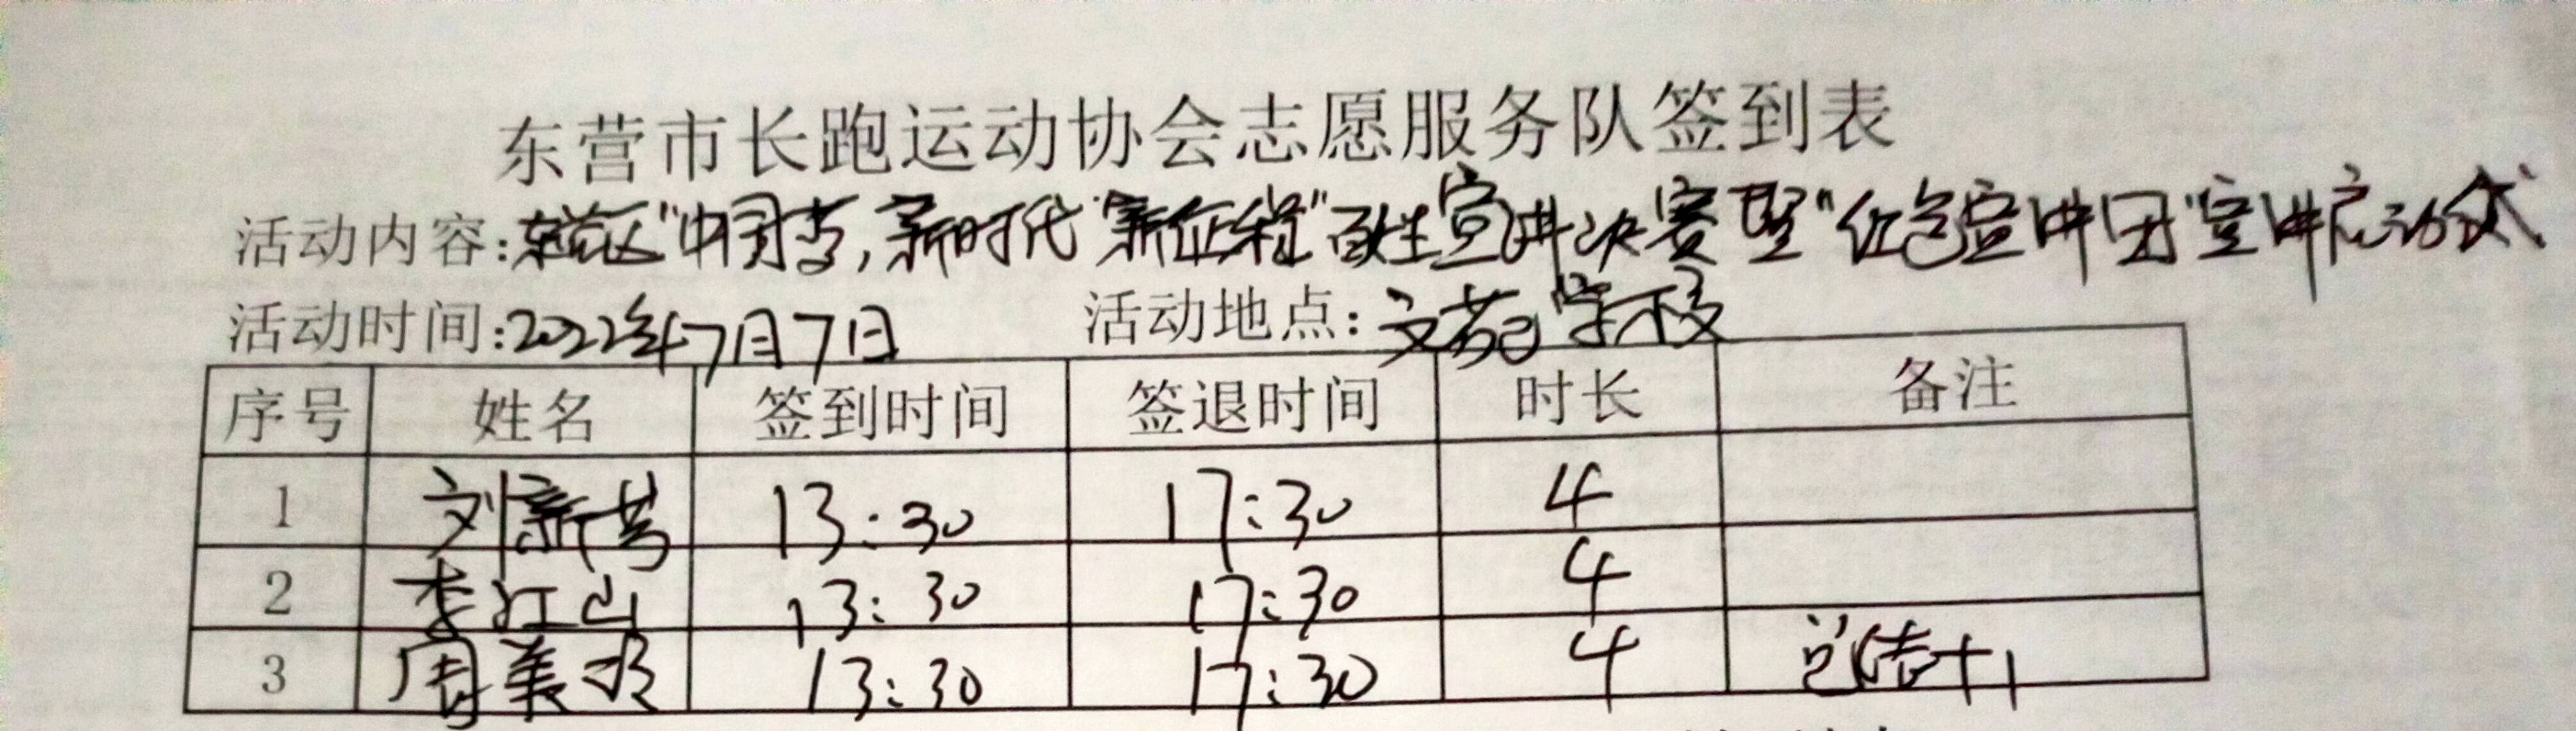 东营市长跑运动协会志愿服务队签到表
活动内容:东营区"中国梦,新时代"新征程"百姓宣讲决赛暨"红色宣讲团"宣讲启动仪式
活动时间:2022年7月7日 活动地点:文苑学校
序号 姓名 签到时间 签退时间 时长 备注
1 刘新芳 13:30 17:30 4
2 李江山 13:30 17:30 4
3 周美 13:30 17:30 4 总结+1